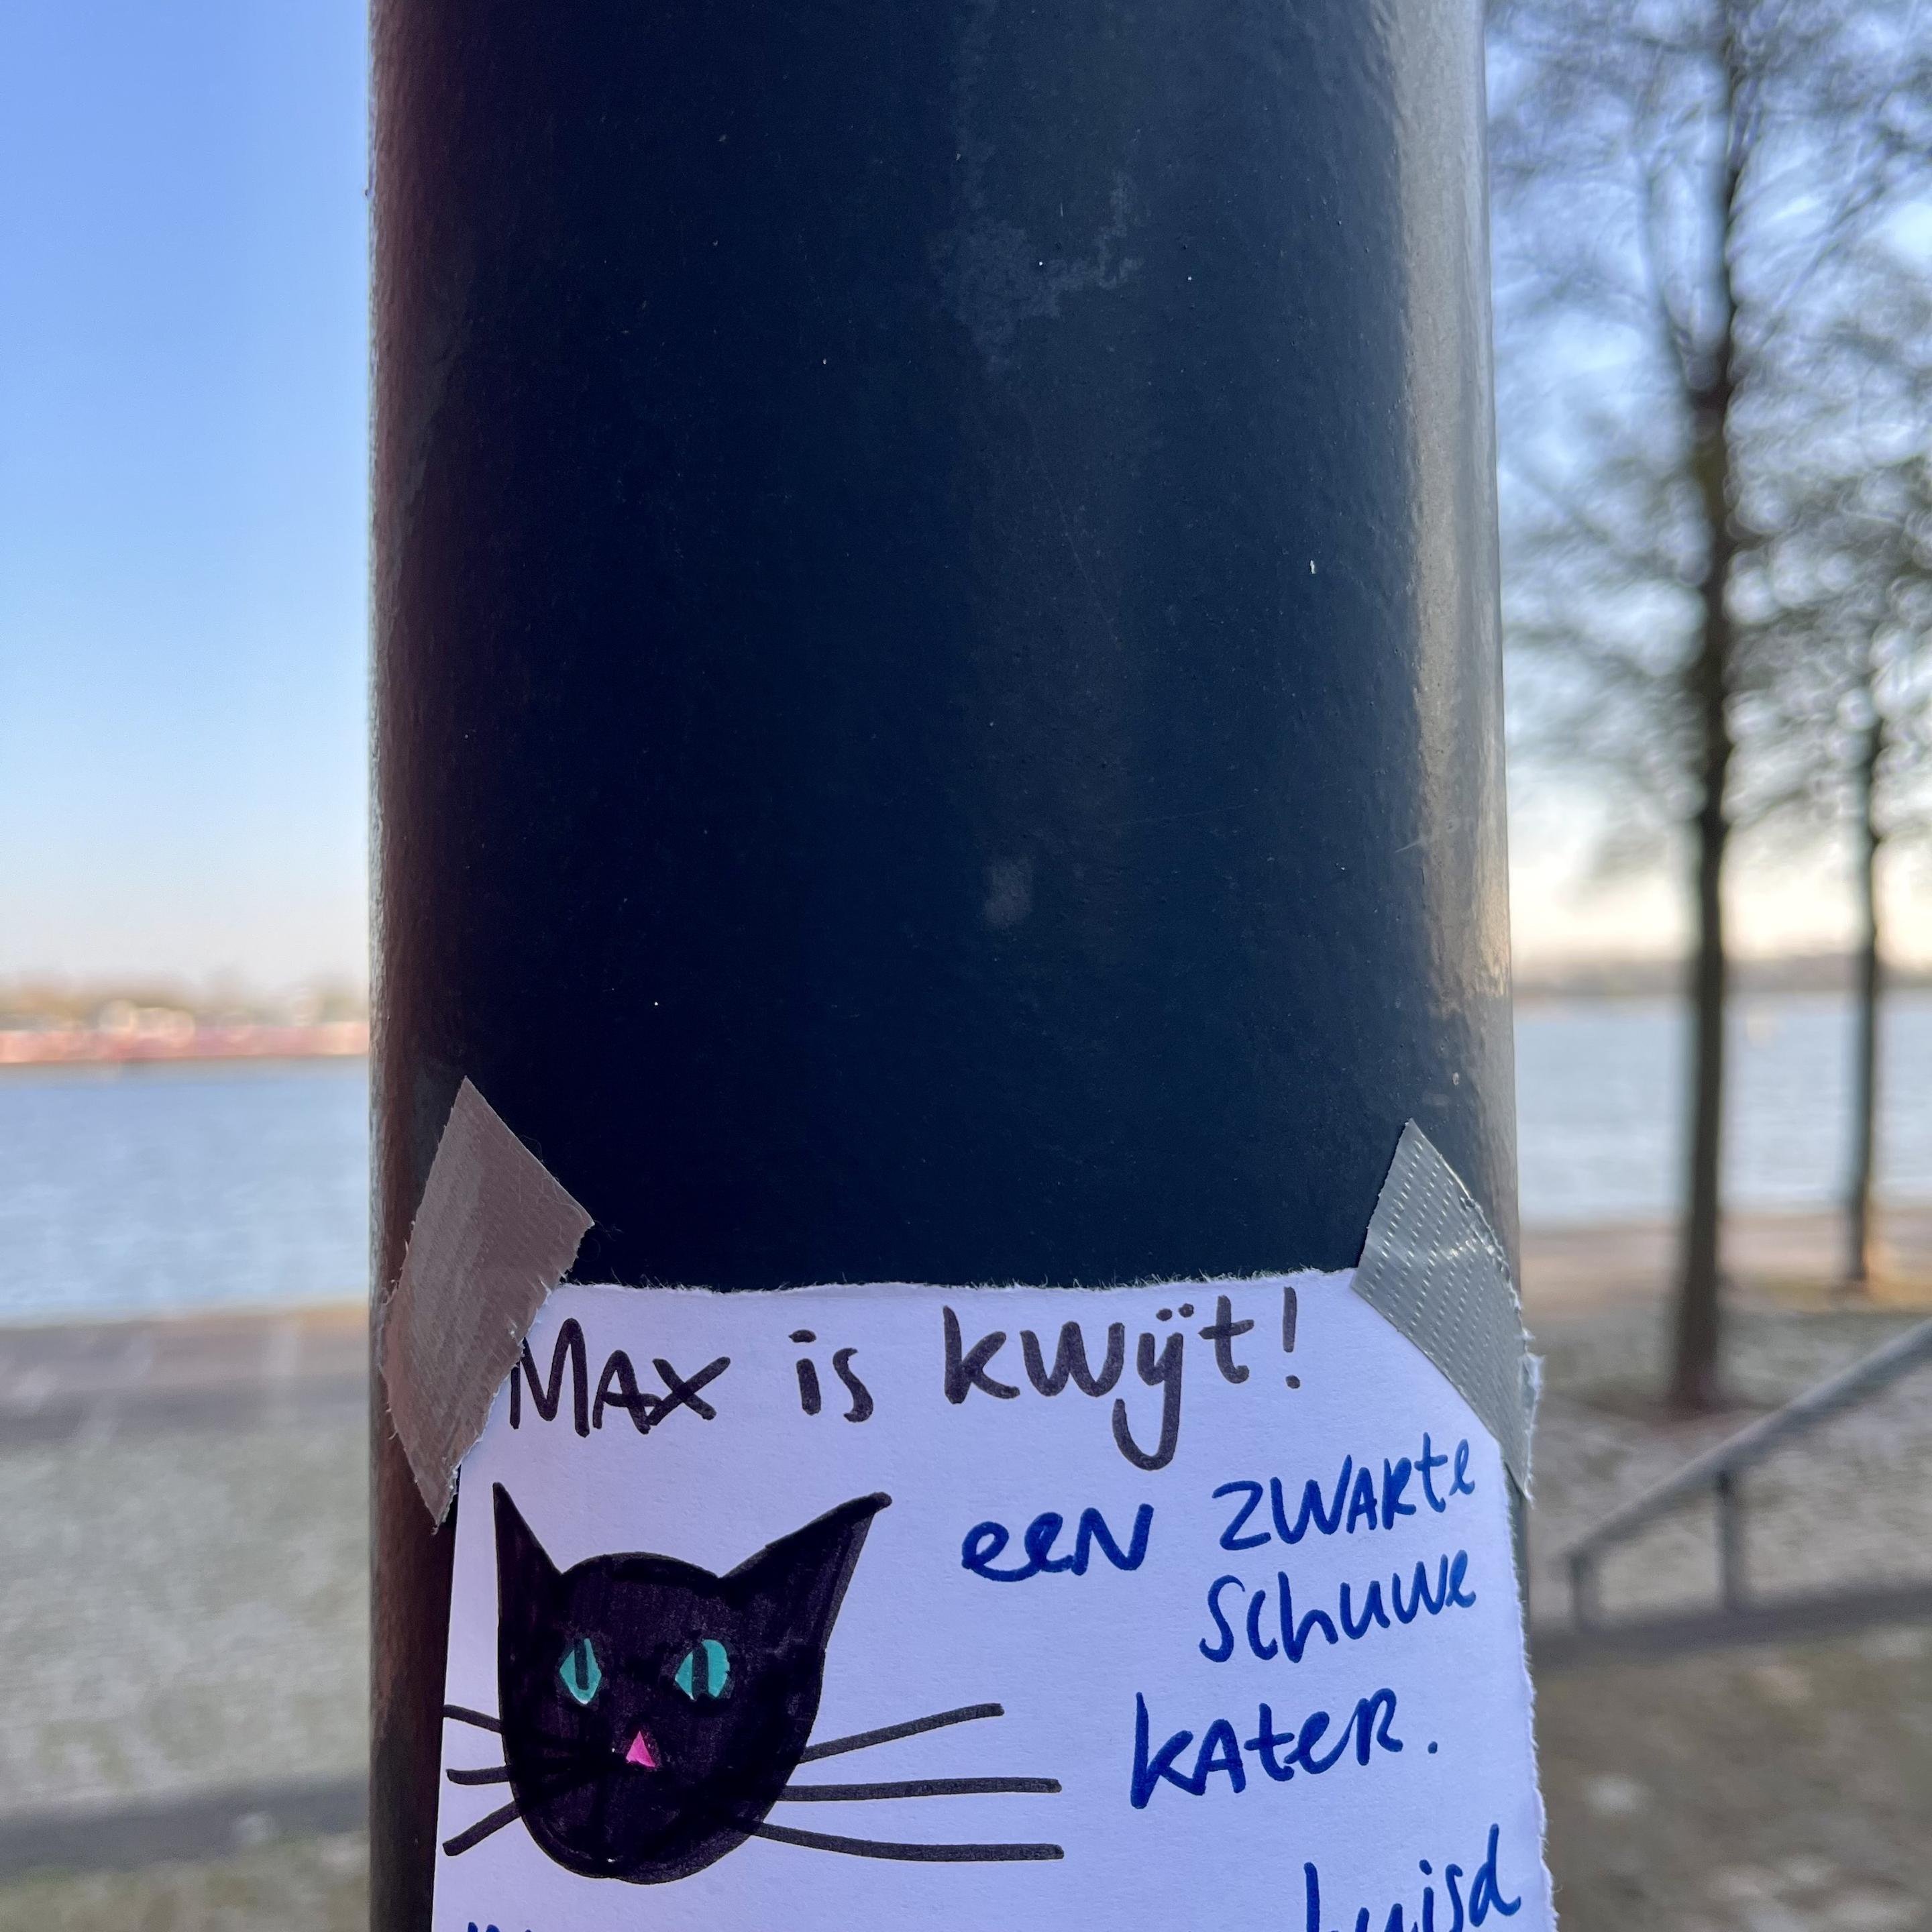 MAX is kwÿt!
een zwarte
schuwe
kater.